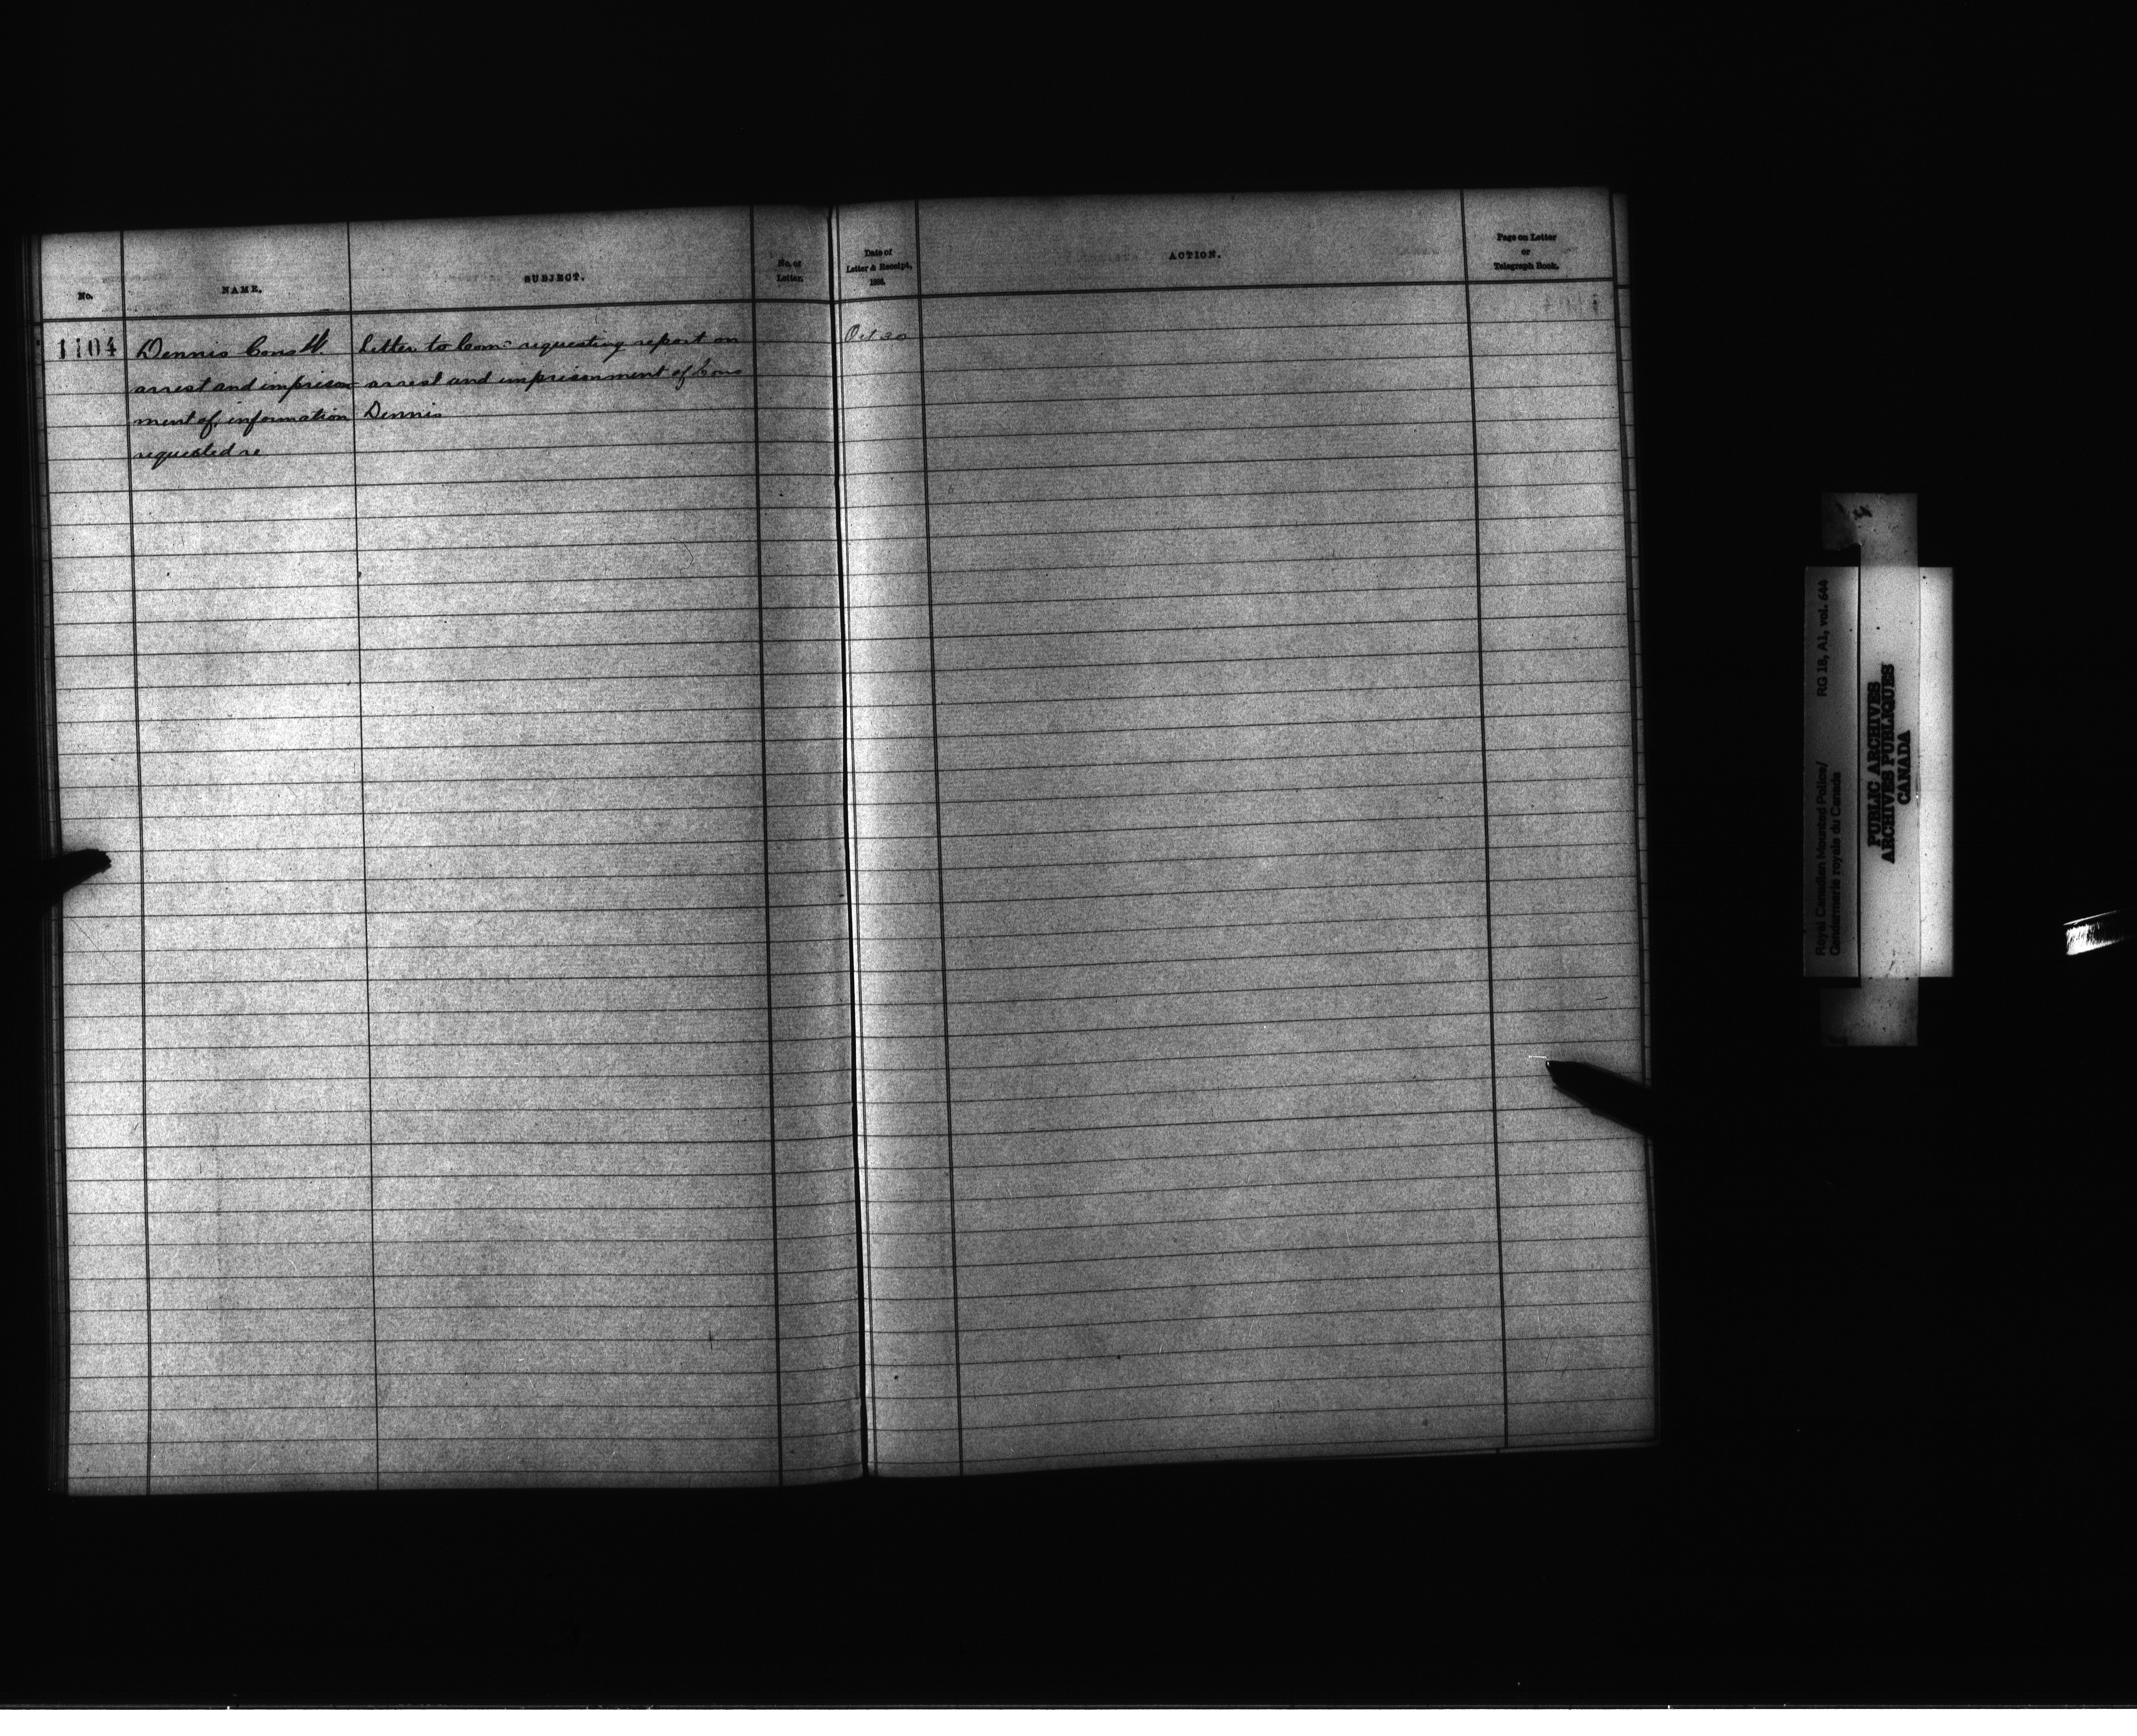 No.
NAME.
SUBJECT.
No. of
Letter.
Date of
Letter & Receipt,
ACTION.
Page on Letter
or
Telegraph Book.
1104
Dennis Const W.
arrest and imprison-
ment of, information
requested re
Letter to Comr requesting report on
arrest and imprisonment of Cons
Dennis
Oct 30
RG 18, A1, vol. 644
Royal Canadian Mounted Police/
Gendarmerie royale du Canada
PUBLIC ARCHIVES
ARCHIVES PUBLIQUES
CANADA